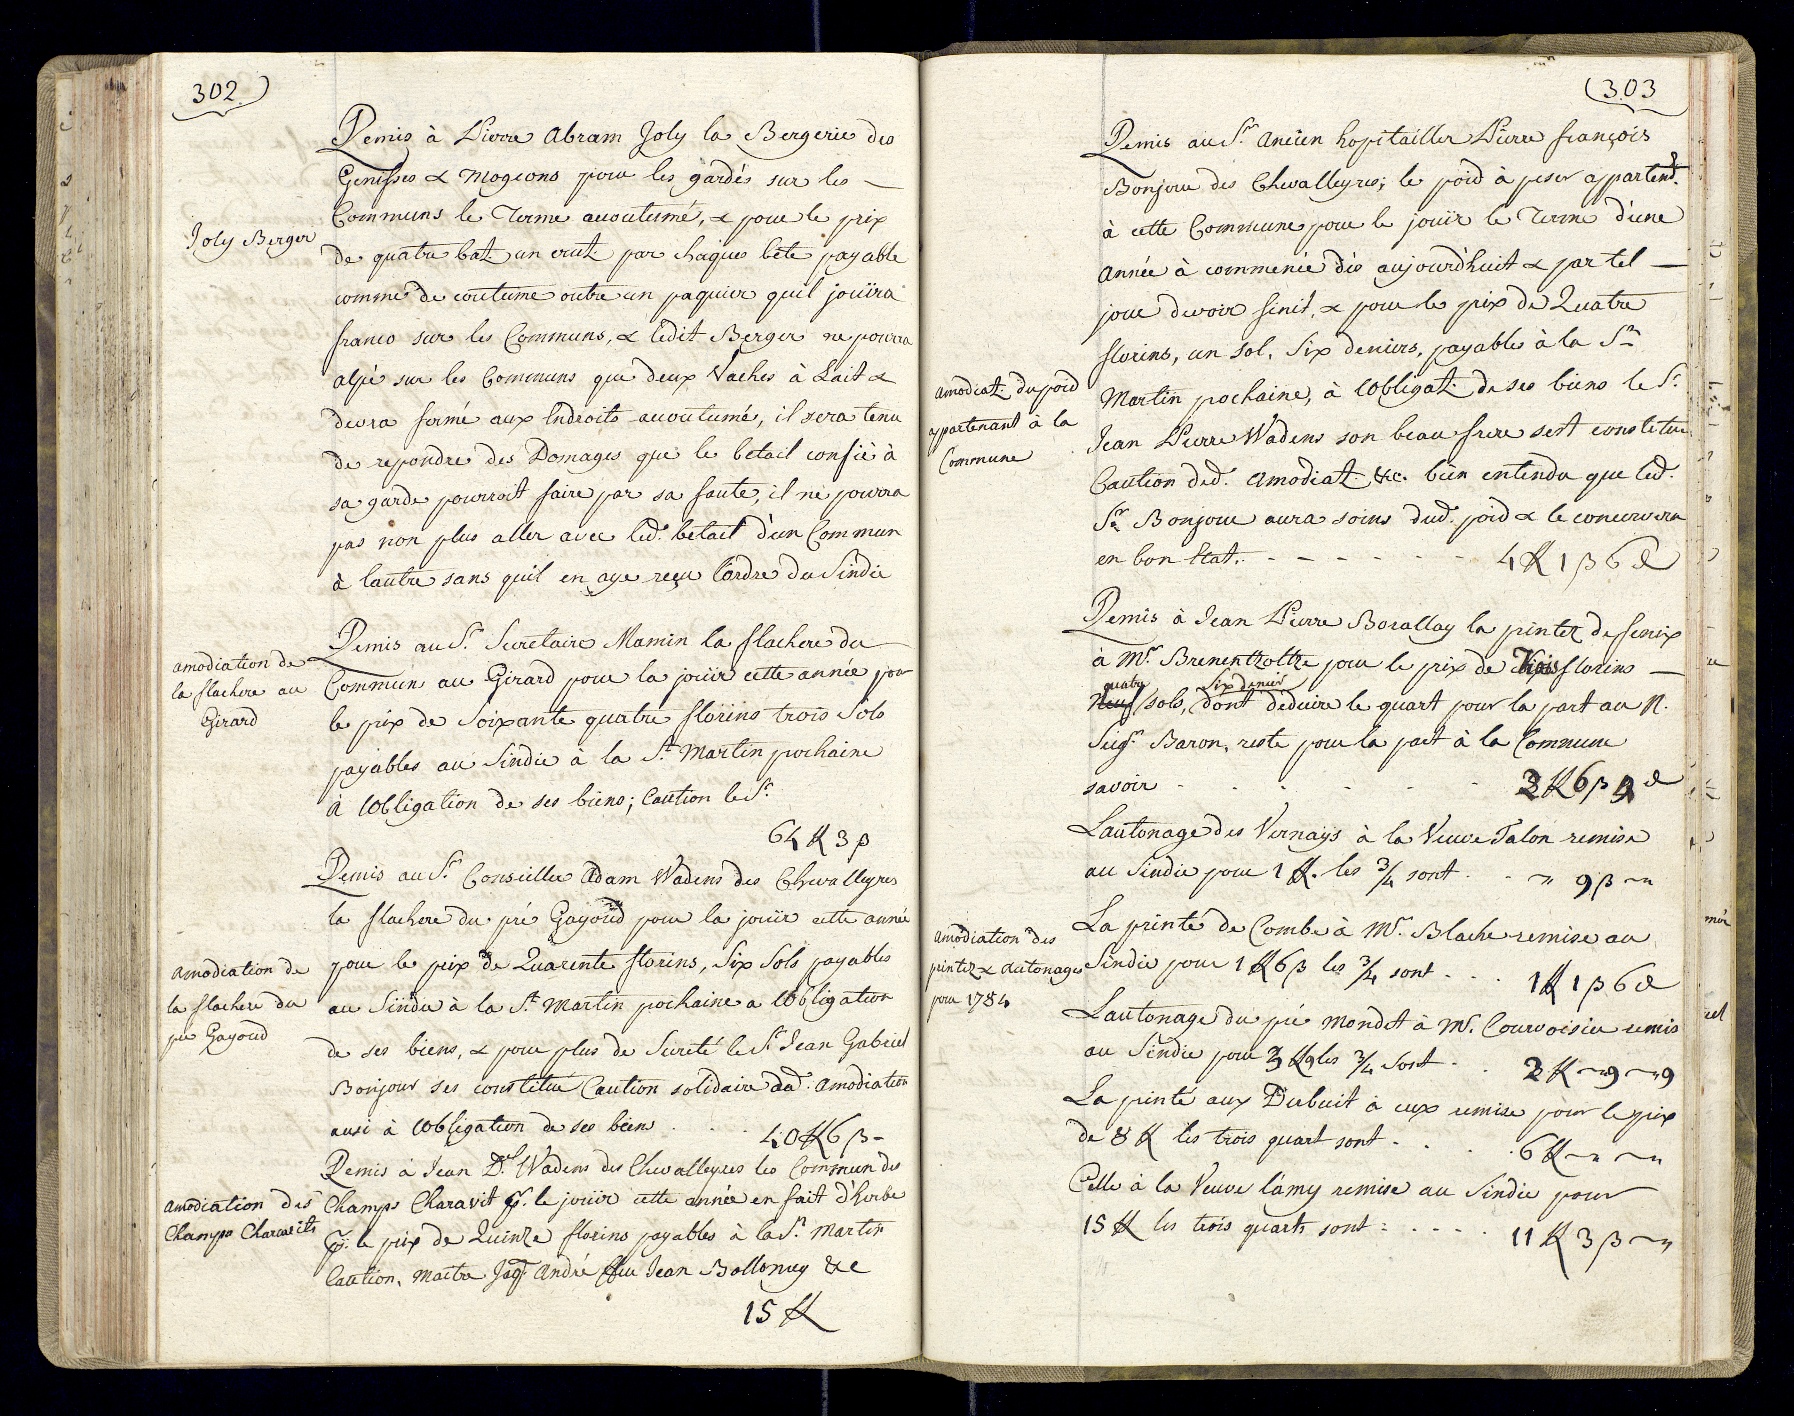 302
Remis à Pierre Abram Joly la Bergerie des
Genisses & mogeons pour les gardés sur les —
Communs le Terme accoutumé, & pour le prix
Joly Berger
de quatre batz un crutz par chaques bête payable
comme de coutume outre un paquier quil jouïra
franco sur les Communs, & ledit Berger ne pourra
alpé sur les Communs que deux Vaches à Lait &
devra fermé aux Endroits accoutumé, il sera tenu
de repondre des Domages que le betail confié à
sa garde pourroit faire par sa faute, il ne pourra
pas non plus aller avec led. betail d'un Commun
à lautre sans quil en aye reçu l'ordre du Sindic
Remis au Sr. Secretaire Mamin la flachere du
amodiation de
la flachere au
Girard
Commun au Girard pour la jouïr cette année pour
le prix de Soixante quatre florins trois Sols
payables au Sindic à la St. Martin prochaine
à l'obligation de ses biens; Caution le Sr.
64 ff 3 β
Remis au Sr. Conseiller Adam Wadens des Chevalleyres
la flachere du pré Gayoud pour la jouïr cette année
amodiation de
la flachere du
pré Gayoud
pour le prix de Quarente florins, Six Sols payables
au Sindic à la St. Martin prochaine a l'obligation
de ses biens, & pour plus de Sureté le Sr. Jean Gabriel
Bonjour ses constitué Caution solidaire dud. amodiation
ausi à l'obligation de ses biens . . . 40 ff 6 β -
Remis à Jean Dl. Wadens des Chevalleyres les Commun des
amodiation des
Champs Charavits
Champs Charavit pr. le jouïr cette année en fait d'herbe
pr. le prix de Quinze florins payables à la St. Martin
Caution, Maitre Jaq. André ffeu Jean Ballonay &c
15 ff
303
Remis au Sr. Ancien hopitailler Pierre françois
Bonjour des Chevalleyres; le poid à peser appartent.
à cette Commune pour le jouïr le Terme d'une
année à commencé dès aujourdhuit & par tel —
jour devoir finit, & pour le prix de Quatre
florins, un Sol, Six deniers, payables à la St.
amodiat. du poid
appartenant à la
Commune
Martin prochaine, à l'obligat. de ses biens le Sr.
Jean Pierre Wadens son beau frere sest constitué
Caution dud. amodiat. &c. bien entendu que led.
Sr. Bonjour aura soins dud. poid & le conservera
en bon Etat. - - - - - - 4 ff 1 β 6 d
Remis à Jean Pierre Borallay la printez de feruix
à Mr. Brenentzoltze pour le prix de Trois florins —
quatre sols, Six denier dont déduire le quart pour la part au N.
Seigr. Baron, reste pour la part à la Commune
savoir - - - - - 2 ff 6 β 4 d
Lautonage des Vernays à la Veuve Talon remise
au Sindic pour 1 ff. les 3/4 sont . . ~" 9 β ~"
amodiation des
printez & autonages
pour 1784
La printé de Combe à Mr. Blache remise au
Sindic pour 1 ff 6 β les 3/4 sont . . . 1 ff 1 β 6 d
Lautonage du pré Mondet à Mr. Courvoisier remis
au Sindic pour 3 ff 9 les 3/4 sont . . 2 ff ~ 9 ~ 9
La printé aux Dubuit à eux remise pour le prix
de 8 ff les trois quart sont . . . 6 ff ~" ~"
Celle à la Veuve lámy remise au Sindic pour
15 ff les trois quarts sont . . . . 11 ff 3 β ~"